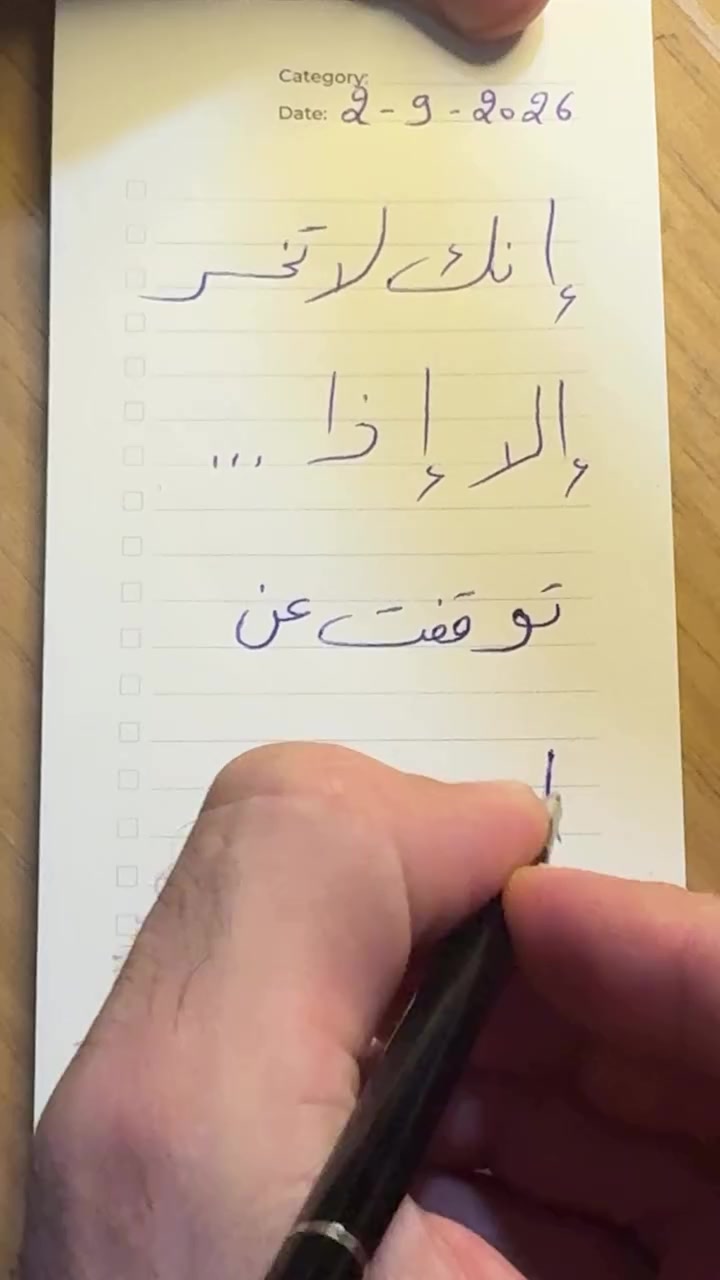 Category:
Date: 2-9-2026
إنك لا تخسر
إلا إذا ...
توقفت عن
ا